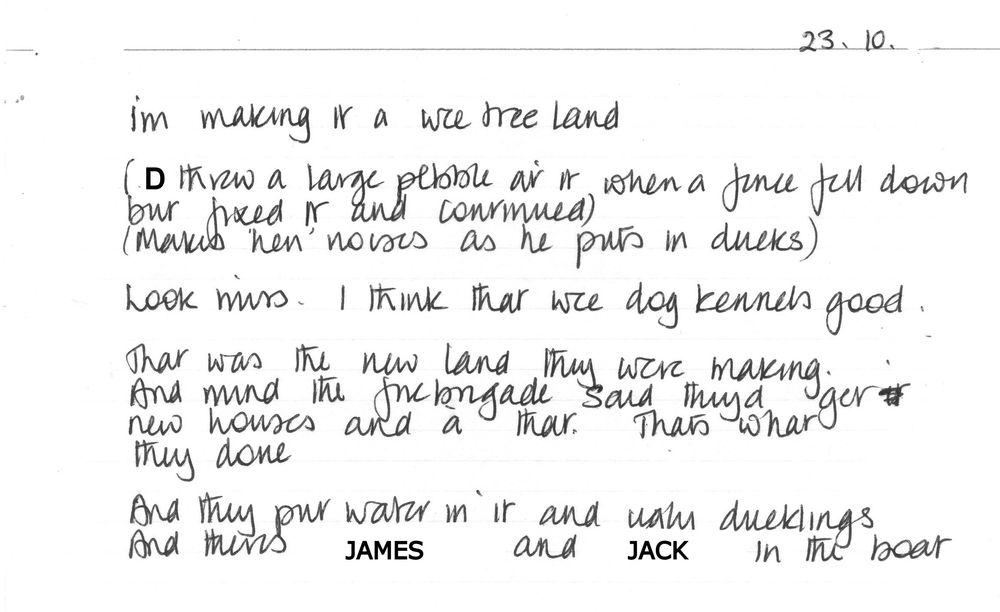 23. 10.
im making it a wee tree land
(D threw a large pebble at it when a fence fell down
but fixed it and continued)
(Makes 'hen' noises as he puts in ducks)
Look miss. I think that wee dog kennels good.
That was the new land they were making.
And mind the firebrigade said they'd get
new houses and a' that. Thats what
they done
And they put water in it and ducklings
And theres JAMES and JACK in the boat